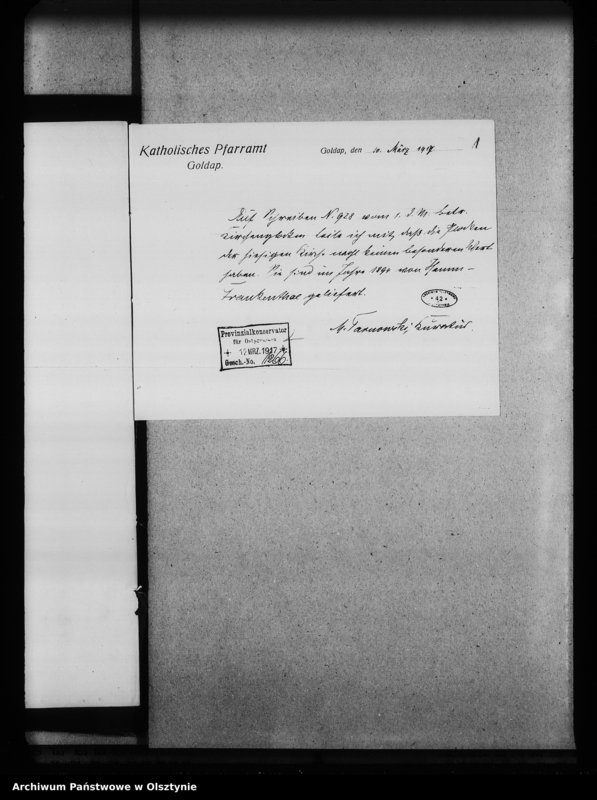 Katholisches Pfarramt
Goldap.
Goldap, den 10. März 1917
1
Auf Schreiben N. 928 vom 1. d. M. betr.
teile ich mit, daß die Glocken
der hiesigen Kirche keinen besonderen Wert
haben. Sie sind im Jahre 1894 von Hamm-
Frankenthal geliefert.
42
A. Tarnowski, Kuratus
Provinzialkonservator
für Ostpreussen
12 MRZ. 1917
Gesch.-No.
Archiwum Państwowe w Olsztynie